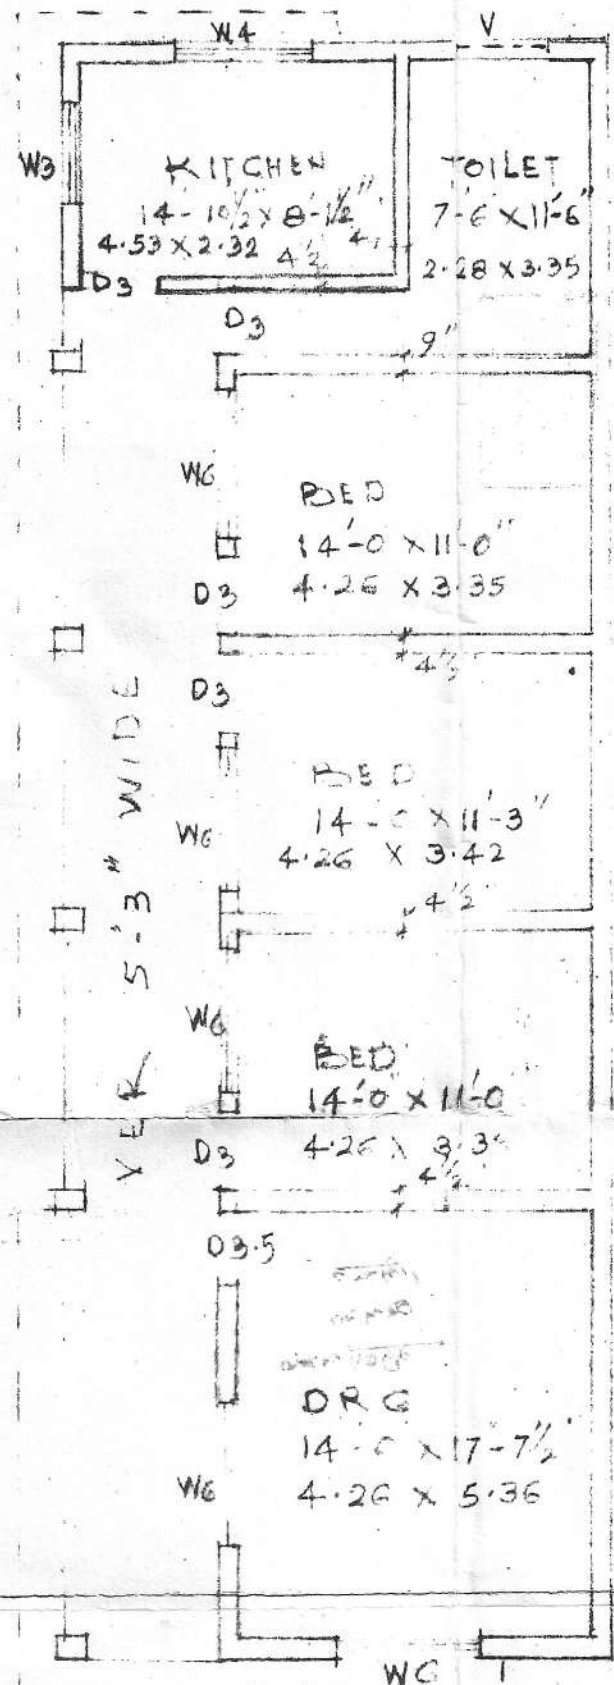 W4
V
W3
KITCHEN
14'-10½" x 8'-1½"
4.53 x 2.32
4½
TOILET
7'-6 x 11'-6"
2.28 x 3.35
D3
D3
9"
W6
BED
14'-0 x 11'-0"
4.26 x 3.35
D3
4½
D3
BED
14-0 x 11'-3"
4.26 x 3.42
W6
4½
VER 5'-3" WIDE
W6
BED
14'-0 x 11'-0
4.26 x
D3
4½
D3.5
DRG
14-0 x 17'-7½"
4.26 x 5.36
W6
W6